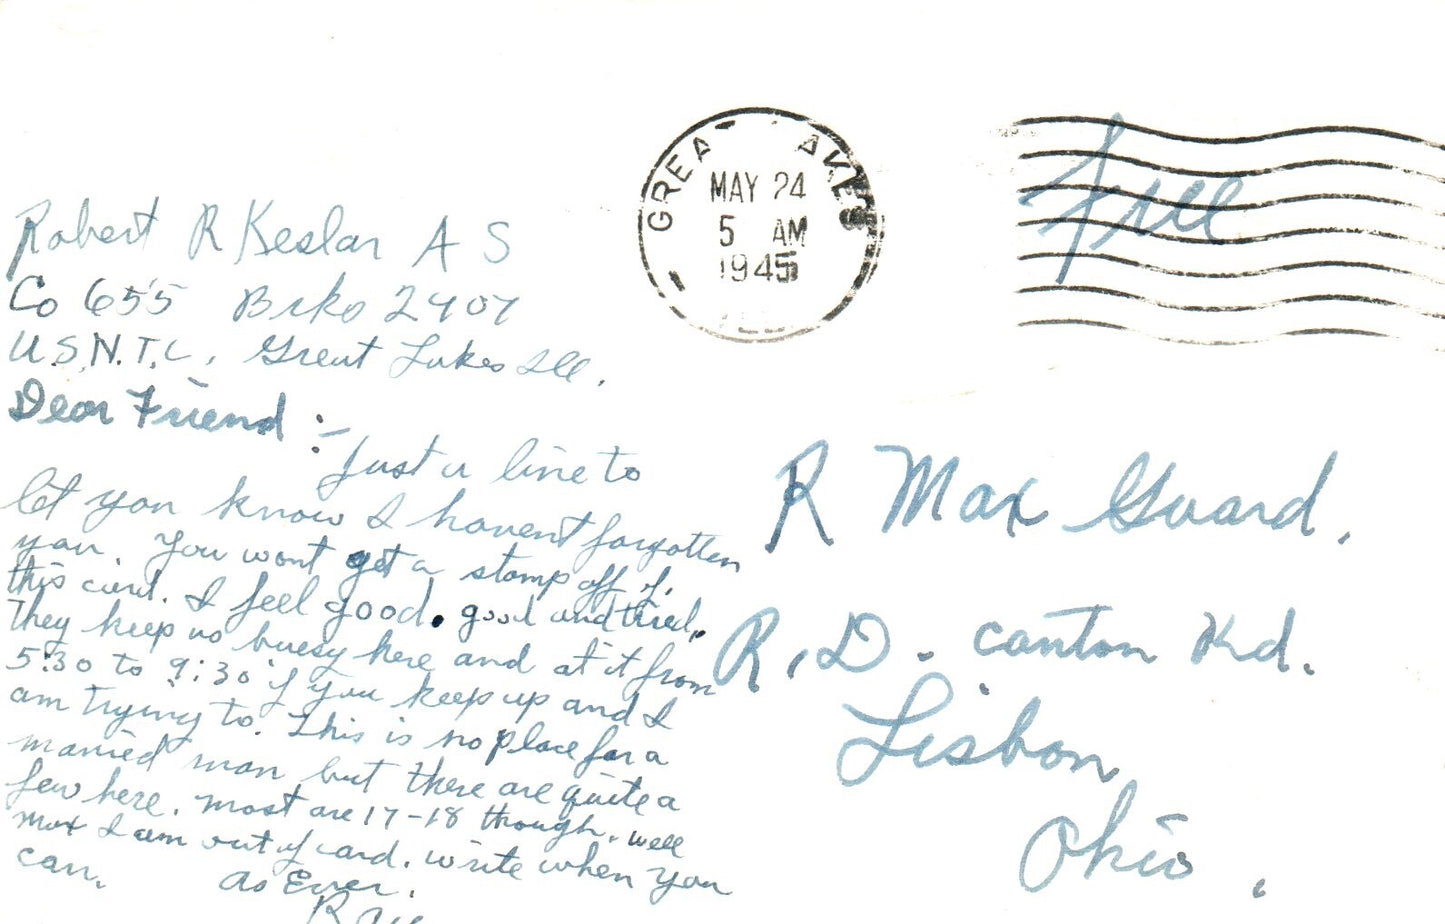 Robert R Keslar A S
Co 655 Brks 2407
U.S.N.T.C. Great Lakes Ill.
GREA AKES
MAY 24
5 AM
1945
Free
Dear Friend :-
Just a line to
let you know I havent forgotten
you. You wont get a stamp off of
this card. I feel good. good and tired.
They keep us buesy here and at it from
5:30 to 9:30 if you keep up and I
am trying to. This is no place for a
married man but there are quite a
few here. most are 17-18 though. well
Max I am out of card. write when you
can. As Ever.
R Max Guard.
R.D. Canton Rd.
Lisbon
Ohio.